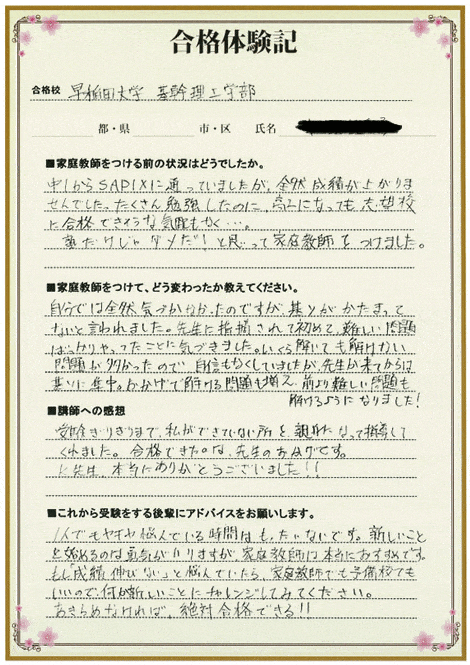 合格体験記
合格校 早稲田大学 基幹理工学部
都・県 市・区 氏名
■家庭教師をつける前の状況はどうでしたか。
中1からSAPIXに通っていましたが、全然成績が上がりま
せんでした。たくさん勉強したのに、高3になっても志望校
に合格できそうな気配もなく…。
塾だけじゃダメだ!と思って家庭教師をつけました。
■家庭教師をつけて、どう変わったか教えてください。
自分では全然気づかなかったのですが、基そがかたまって
ないと言われました。先生に指摘されて初めて、難しい問題
ばっかりやってたことに気づきました。いくら解いても解けない
問題が多かったので、自信もなくしていましたが、先生が来てからは
基そに集中。おかげで解ける問題も増え、前より難しい問題も
解けるようになりました!
■講師への感想
受験ぎりぎりまで、私ができていない所を、親身になって指導して
くれました。合格できたのは、先生のおかげです。
先生、本当にありがとうございました!!
■これから受験をする後輩にアドバイスをお願いします。
1人でモヤモヤ悩んでいる時間はもったいないです。新しいこと
を始めるのは勇気がいりますが、家庭教師は本当におすすめです。
もし「成績伸びない」と悩んでいたら、家庭教師でも予備校でも
いいので、何か新しいことにチャレンジしてみてください。
あきらめなければ、絶対合格できる!!